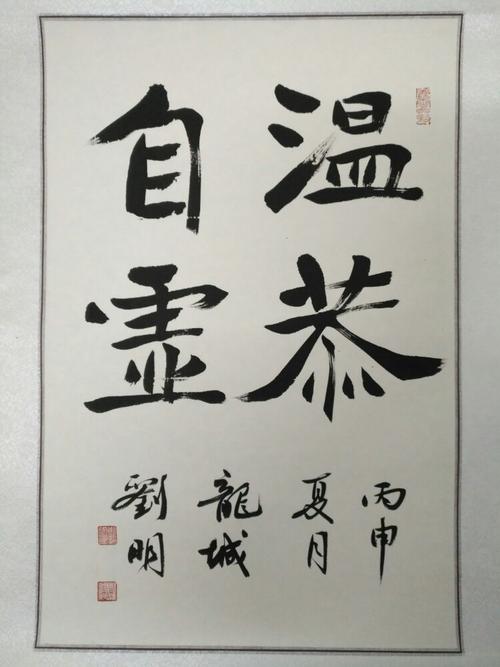 温恭
自虛
丙申
夏月
龍城
劉明